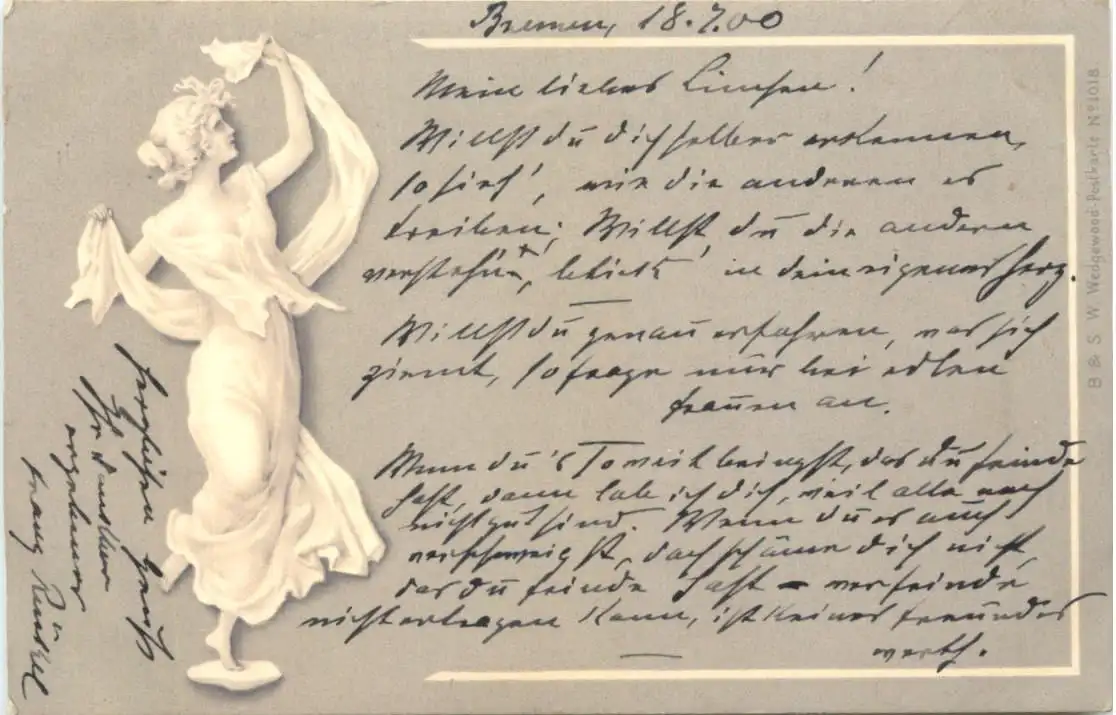 Bremen, 18.7.00
Mein liebes Linchen!
Willst du dich selber erkennen,
so sieh', wie die anderen es
treiben; Willst du die andern
verstehn, blick' in dein eigenes Herz.
Willst du genau erfahren, was sich
ziemt, so frage nur bei edlen
Frauen an.
Wenn du's so weit bringst, das du feinde
hast, dann lob ich dich, weil alle noch
nicht gut sind. Wenn du es auch
verschweigst, doch schäme dich nicht,
das du feinde hast - wer feinde
nicht ertragen kann, ist keines freundes
werth.
Herzlichen Gruß
Ihr
ergebener
Franz
B & S W. Wedgewood-Postkarte No 1018